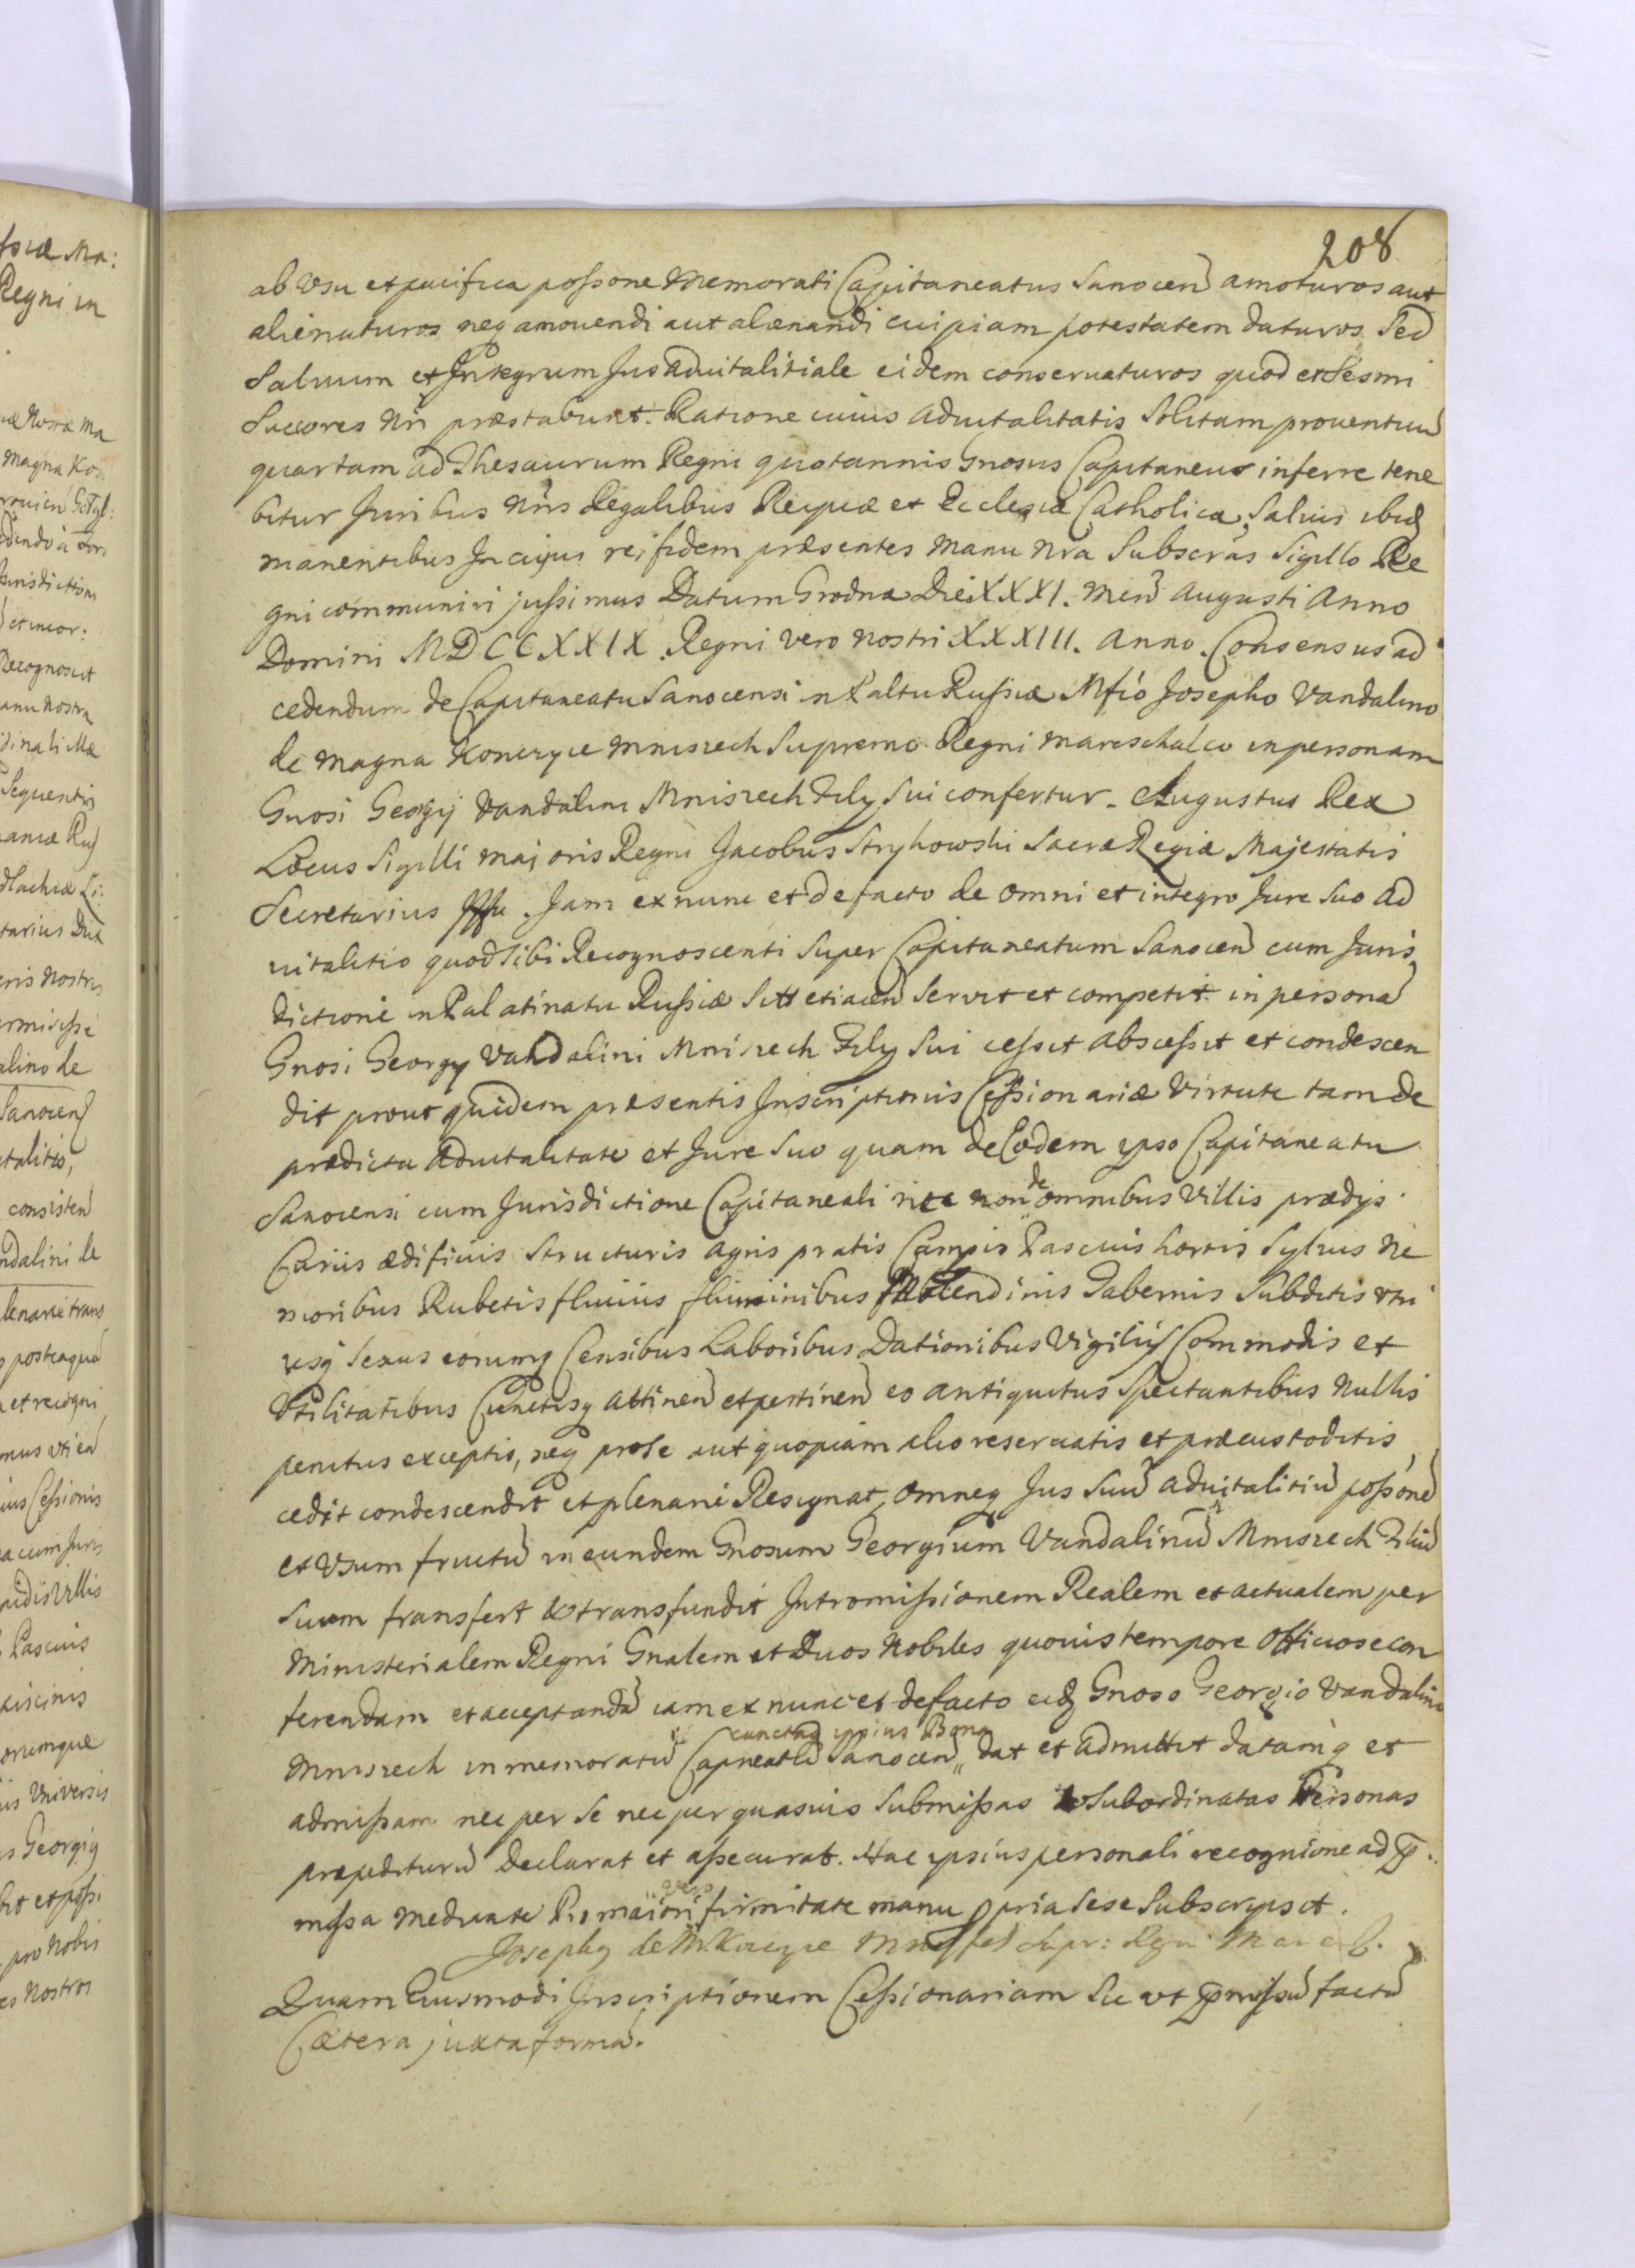 208
ab Vsu et pacifica possone memorati Capitaneatus Sanocen amoturos aut
alienaturos neq amouendi aut alienandi cuipiam potestatem daturos Sed
Saluum et Integrum Jus Aduitalitiale eidem conseruaturos quod et Sesmi
Succores Nri præstabunt. Ratione cuius Aduitalitatis Solitam prouentuu
quartam ad Thesaurum Regni quotannis Gnosus Capitaneus inferre tene
bitur Juribus Nris Regalibus Reipcæ et Ecclesiæ Catholicæ Saluis ibid
manentibus In cujus rei fidem præsentes Manu Nra Subscras Sigillo Re
gni communiri jussimus Datum Grodnæ Die XXXI. Men Augusti Anno
Domini MDCCXXIX. Regni vero nostri XXXIII. Anno. Consensus ad
cedendum de Capitaneatu Sanocensi in Paltu Russiæ Mfico Josepho Vandalino
de Magna Konczyce Mniszech Supremo Regni Mareschalco in personam
Gnosi Georgij Vandalini Mniszech Filij Sui confertur. Augustus Rex
Locus Sigilli majoris Regni Jacobus Stryhowski Sacræ Regiæ Majestatis
Secretarius Jam ex nunc et de facto de omni et integro Jure Suo Ad
uitalitio quod Sibi Recognoscenti Super Capitaneatum Sanocen cum Juris
dictione in Palatinatu Russiæ Sitt etiacen Seruit et competit in persona
Gnosi Georgij Vandalini Mniszech Filij Sui cessit abscessit et condescen
dit prout quidem præsentis Inscriptionis Cessionariæ Virtute tam de
prædicta Aduitalitate et Jure Suo quam de Eodem ipso Capitaneatu
Sanocensi cum Jurisdictione Capitaneali nec non de omnibus Villis prædijs
Curiis ædificiis Structuris Agris pratis Campis Pascuis hortis Syluis Ne
moribus Rubetis fluuiis fluminibus Molendinis Tabernis Subditis vtri
usq Sexus eorumq Censibus Laboribus Dationibus Vigilijs Commodis et
Vtilitatibus Cunctisq Attinen et pertinen eo antiquitus Spectantibus Nullis
penitus exceptis, neq pro Se aut quopiam alio reseruatis et præcustoditis
cedit condescendit et plenarie Resignat, Omneq Jus Suu aduitalitiu possone
et Vsum fructu in eundem Gnosum Georgium Vandalinu Mniszech Filiu
Suum transfert et transfundit Intromissionem Realem et actualem per
Ministerialem Regni Gnalem et Duos Nobiles quouis tempore Officiose con
ferendam et acceptanda iam ex nunc et de facto eid Gnoso Georgio Vandalino
Mniszech in memoratu Capneatu Sanocen cunctaq ipsius Bona dat et Admittit datamq et
admissam nec per Se nec per quasuis Submissas et Subordinatas Personas
præpedituru Declarat et assecurat. Hac ipsius personali recognione ad p
missa mediante Pro maiori firmitate manu ppria Sese Subscripsit.
Joseph de M. Konczyce Mnis Supr: Regni Mar
Quam Eiusmodi Inscriptionem Cessionariam Sic vt pmissu factu
Cætera juxta forma.